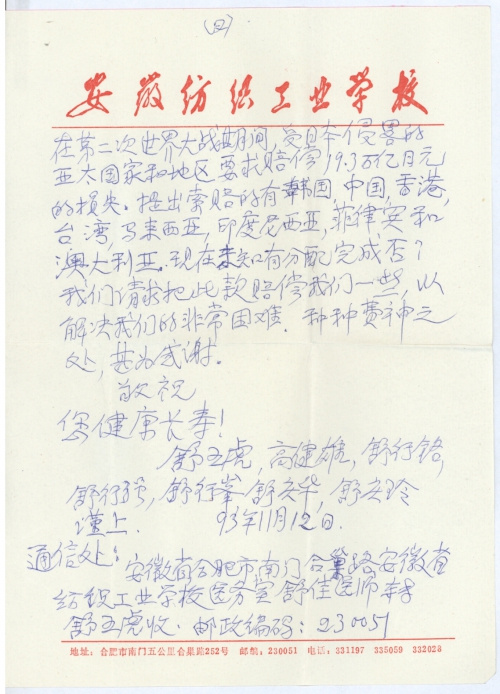 (四)
安徽纺织工业学校
在第二次世界大战期间,受日本侵害的
亚太国家和地区要求赔偿19.3万亿日元
的损失。提出索赔的有韩国,中国,香港,
台湾,马来西亚,印度尼西亚,菲律宾和
澳大利亚。现在未知有分配完成否?
我们请求把此款赔偿我们一些,以
解决我们的非常困难。种种费神之
处,甚为感谢。
敬祝
您健康长寿!
舒五虎,高健雄,舒行铭,
舒行,舒行峯,舒安华,舒安玲
谨上 93年11月12日.
通信处:
安徽省合肥市南门合巢路安徽省
纺织工业学校医务室舒佳医师转
舒五虎收.邮政编码:230051
地址:合肥市南门五公里合巢路252号 邮编:230051 电话:331197 335059 332028